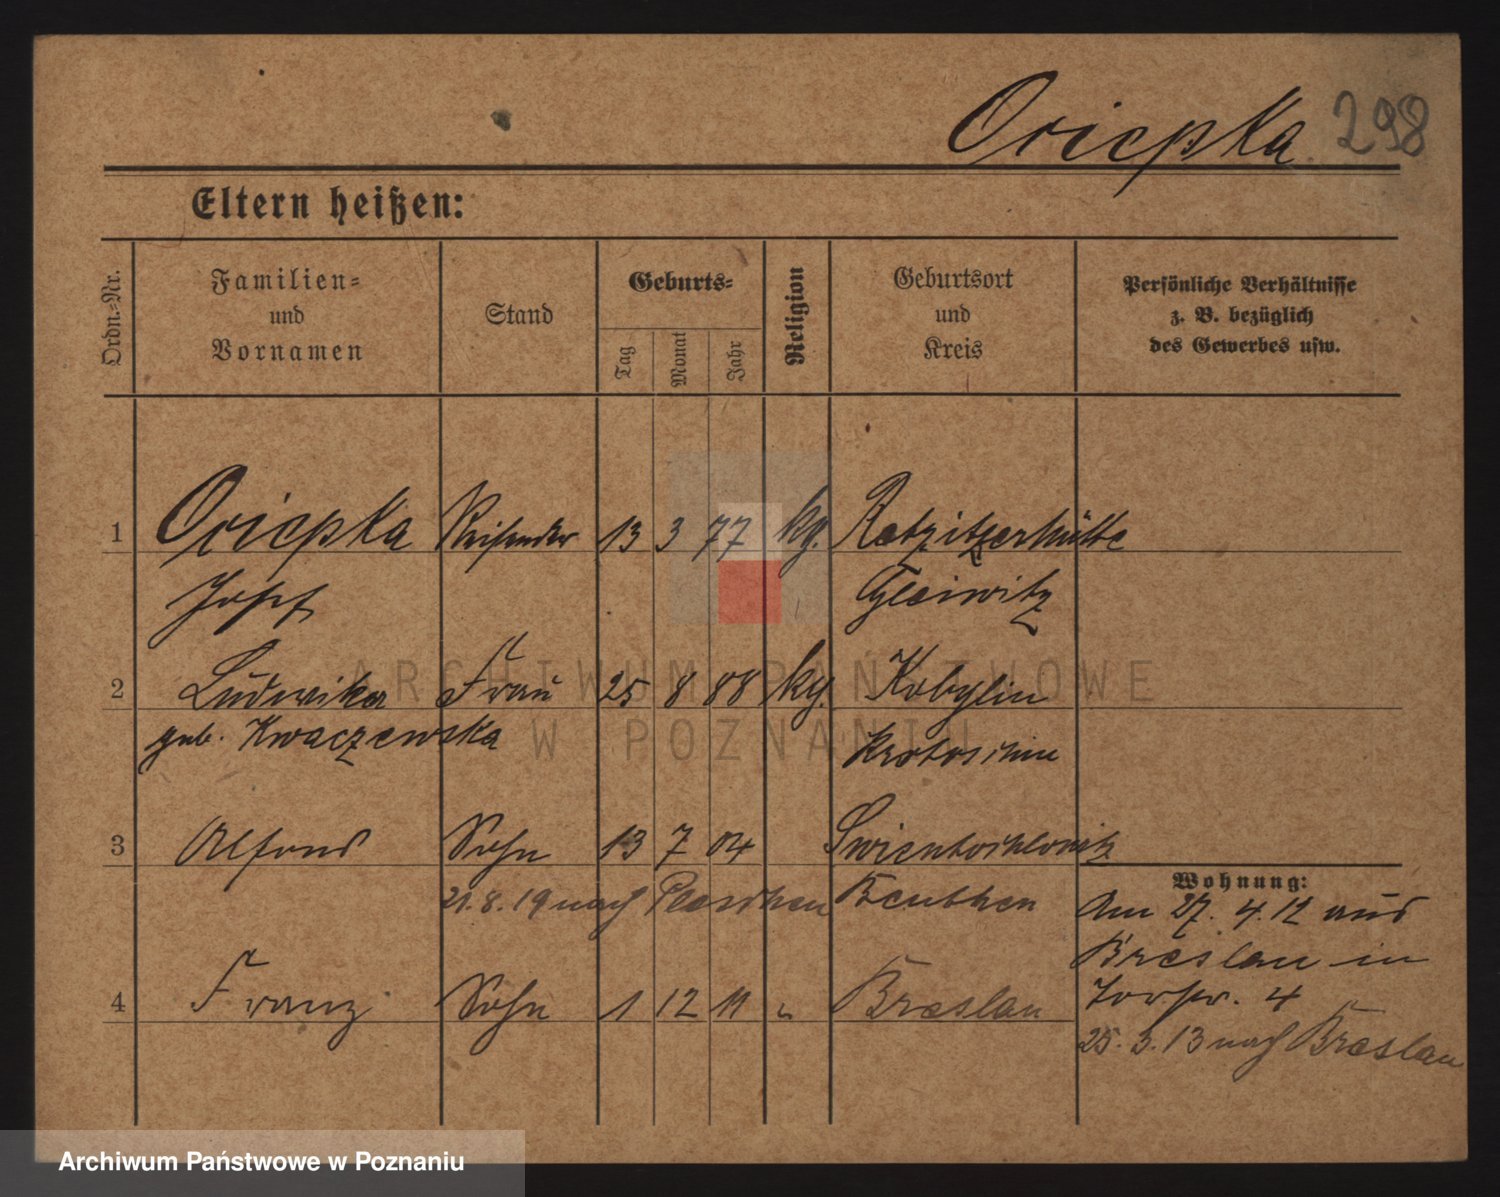 Oriepka 298
Eltern heißen:
Ordn.=Nr.
Familien=
und
Vornamen
Stand
Geburts=
Tag
Monat
Jahr
Religion
Geburtsort
und
Kreis
Persönliche Verhältnisse
z. B. bezüglich
des Gewerbes usw.
1 Oriepka Reisender 13 3 77 kg. Retzitzerhütte
Josef Gleiwitz
2 Ludwika Frau 25 8 88 kg. Kobylin
geb. Kwaczewska Krotoschin
3 Alfons Sohn 13 7 04 Swientochlowitz
21.8.19 nach Pleschen Beuthen
4 Franz Sohn 1 12 11 " Breslau
Wohnung:
Am 27. 4. 12 aus
Breslau in
Torstr. 4
25. 3. 13 nach Breslau
ARCHIWUM PAŃSTWOWE
W POZNANIU
Archiwum Państwowe w Poznaniu